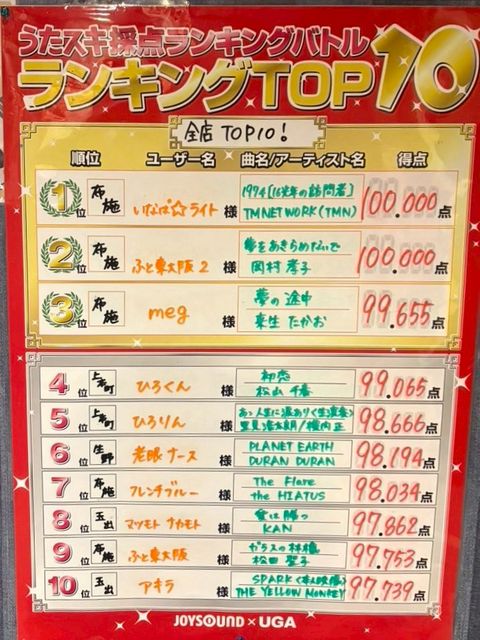 うたスキ採点ランキングバトル
ランキングTOP10
全店 TOP10!
順位 ユーザー名 曲名/アーティスト名 得点
1位 布施 いなぱ☆ライト 様 1974[16光年の訪問者] TM NETWORK(TMN) 100.000点
2位 布施 ふと東大阪2 様 夢をあきらめないで 岡村孝子 100.000点
3位 布施 meg 様 夢の途中 来生たかお 99.655点
4位 上本町 ひろくん 様 初恋 松山千春 99.065点
5位 上本町 ひろりん 様 あゝ人生に涙あり<生演奏> 里見浩太朗/横内正 98.666点
6位 生野 老眼ナース 様 PLANET EARTH DURAN DURAN 98.194点
7位 布施 フレンチブルー 様 The Flare the HIATUS 98.034点
8位 玉出 マツモト タカモト 様 愛は勝つ KAN 97.862点
9位 布施 ふと東大阪 様 ガラスの林檎 松田聖子 97.753点
10位 玉出 アキラ 様 SPARK<本人映像> THE YELLOW MONKEY 97.739点
JOYSOUND × UGA